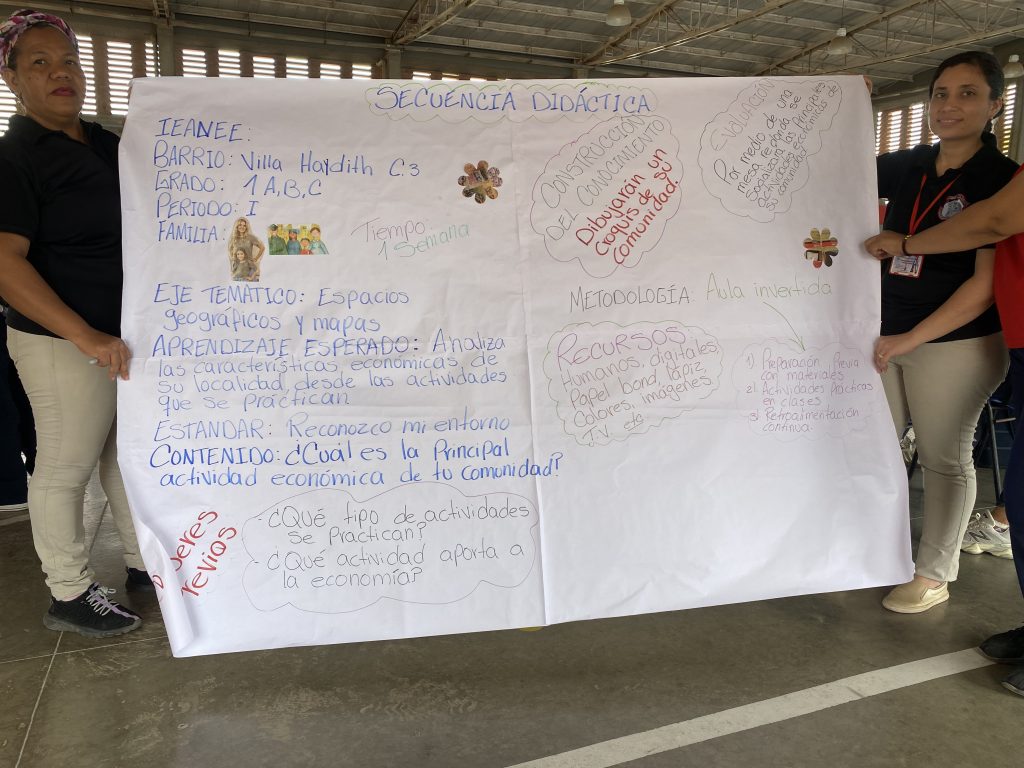 SECUENCIA DIDÁCTICA
IEANEE:
BARRIO: Villa Haydith C:3
GRADO: 1 A,B,C
PERIODO: I
FAMILIA:
Tiempo
1 Semana
EJE TEMÁTICO: Espacios
geográficos y mapas
APRENDIZAJE ESPERADO: Analiza
las características económicas de
su localidad, desde las actividades
que se practican
ESTANDAR: Reconozco mi entorno
CONTENIDO: ¿Cuál es la Principal
actividad económica de tu comunidad?
- ¿Qué tipo de actividades
se Practican?
- ¿Qué actividad aporta a
la economía?
CONSTRUCCIÓN
DEL CONOCIMIENTO
Dibujarán un
croquis de su
comunidad.
Por medio de una
METODOLOGÍA: Aula invertida
RECURSOS:
Humanos, digitales,
Papel bond, lápiz,
Colores, imágenes,
T.V etc
1) Preparación Previa
con materiales.
2) Actividades Prácticas
en clases.
3) Retroalimentación
continua.